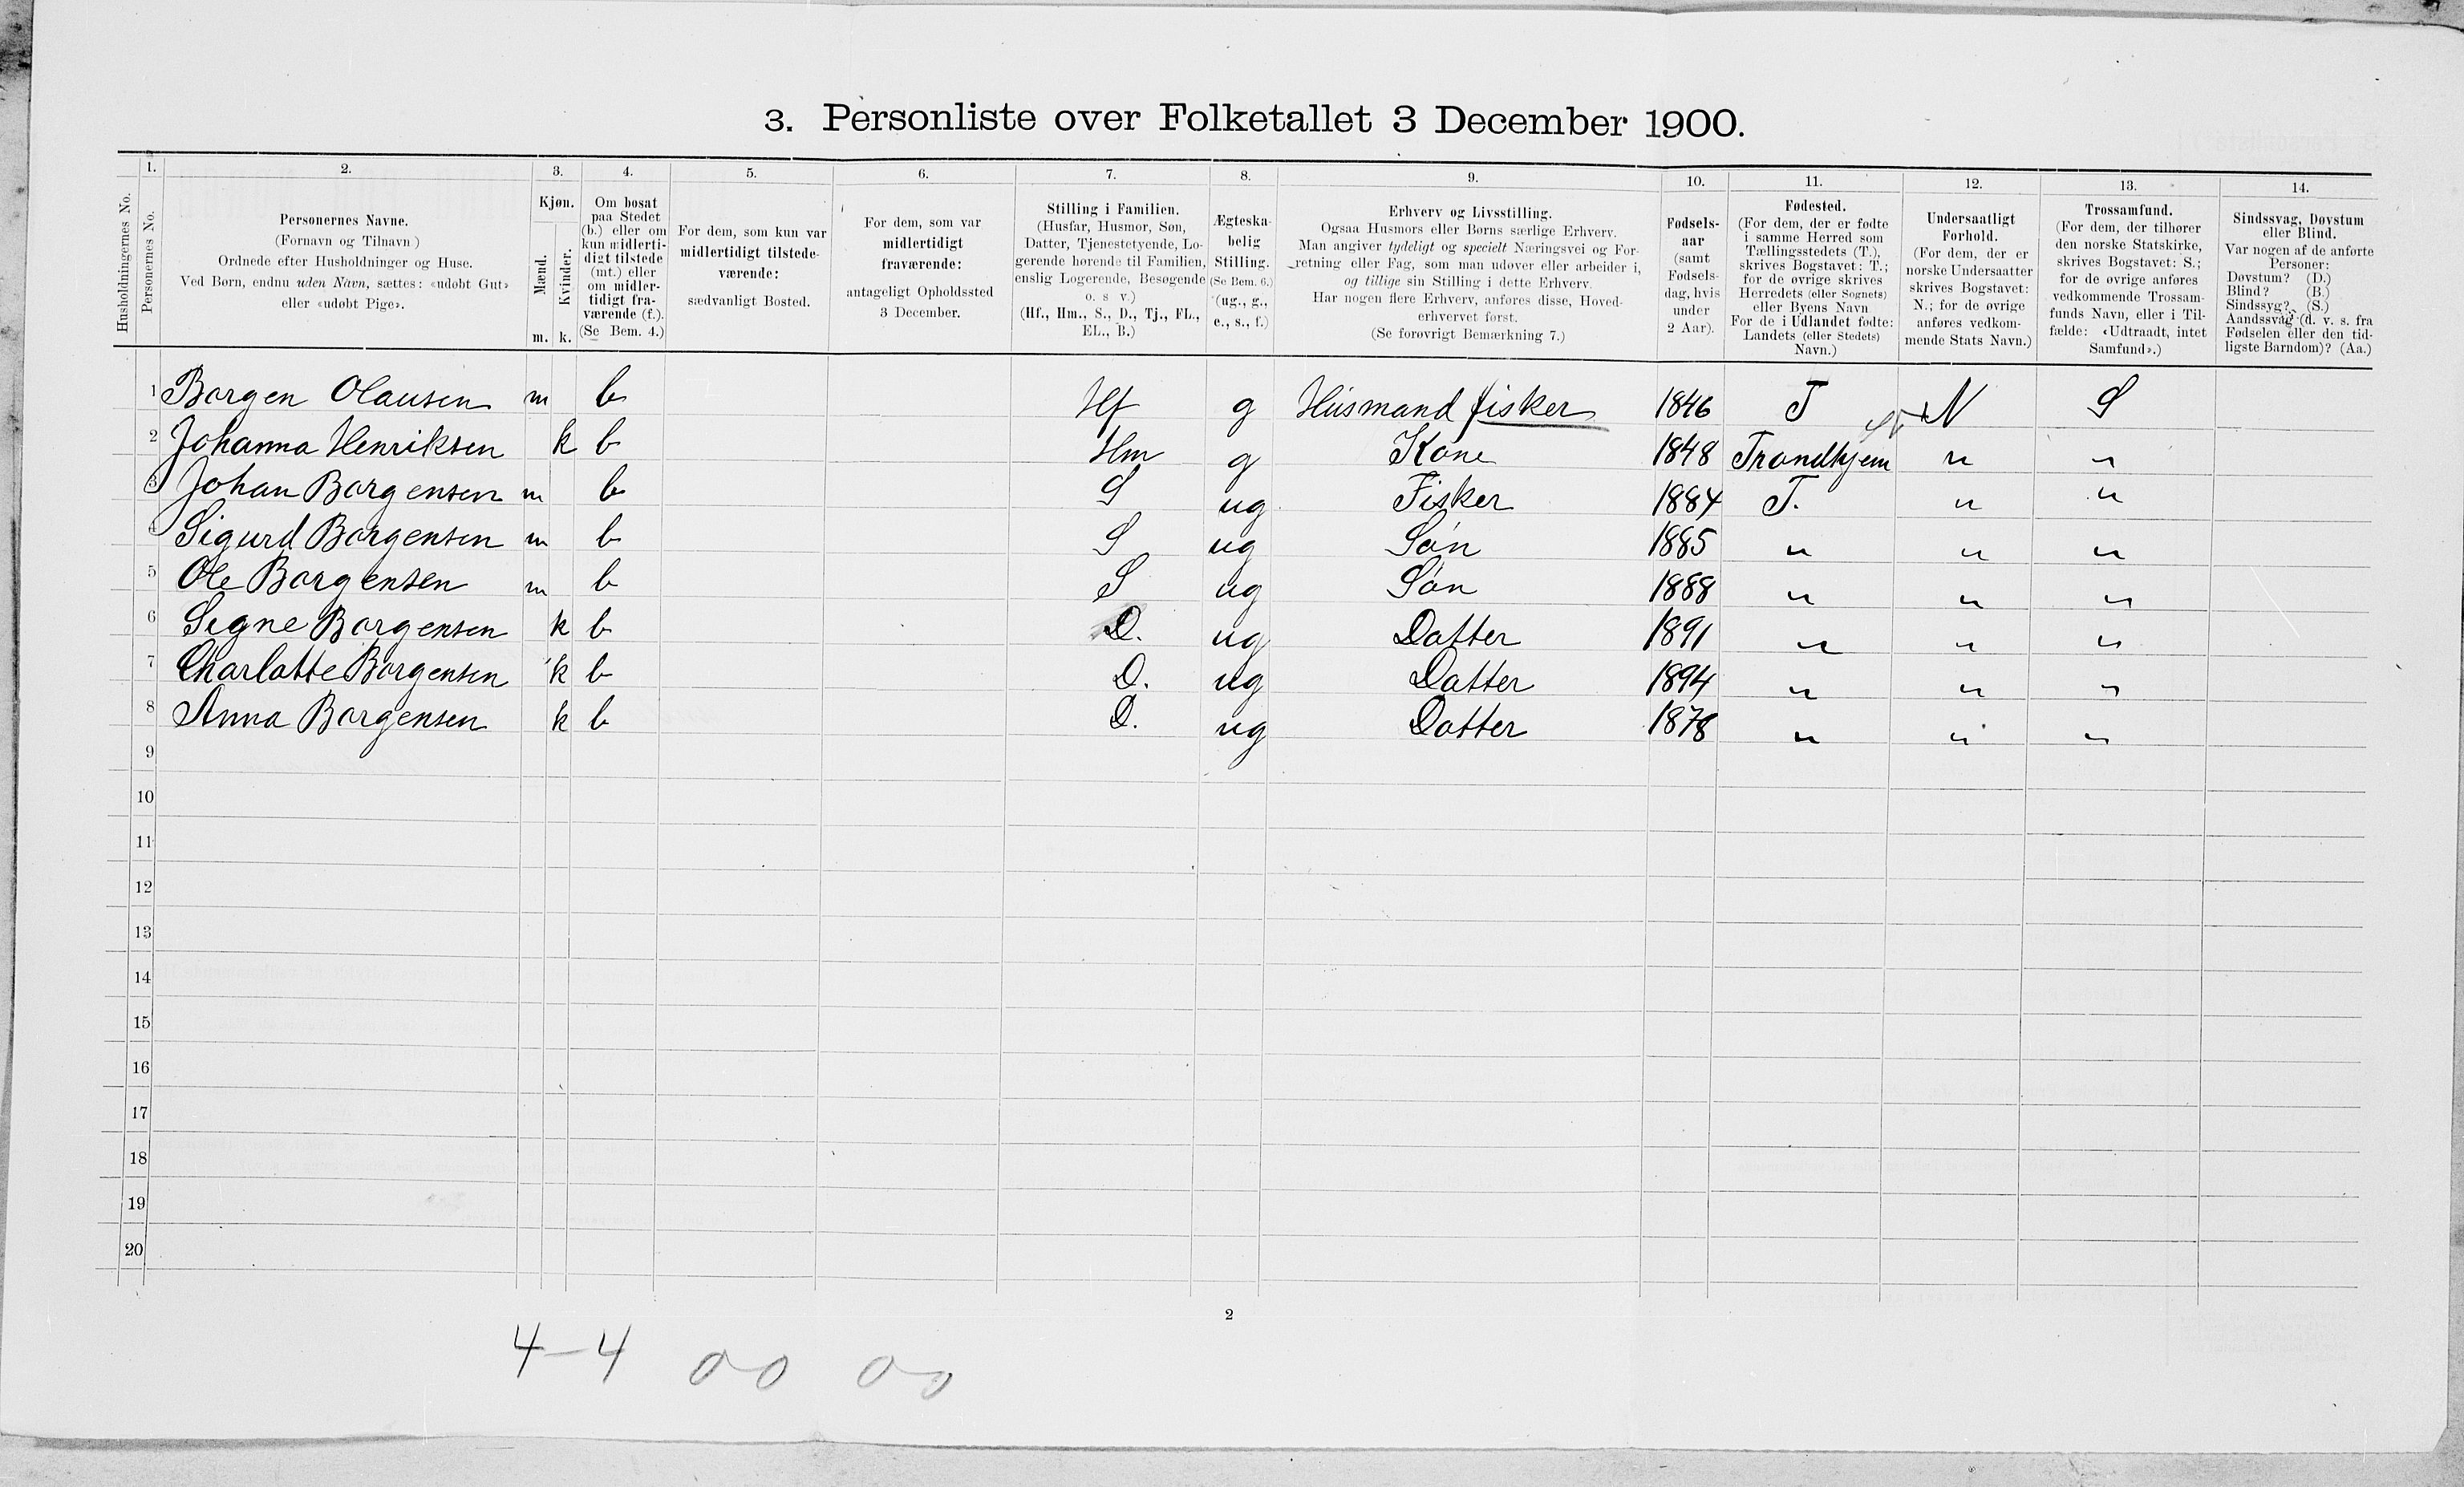 3. Personliste over Folketallet 3 December 1900.
Husholdningernes No.
1.
Personernes No.
2.
Personernes Navne.
(Fornavn og Tilnavn)
Ordnede efter Husholdninger og Huse.
Ved Børn, endnu uden Navn, sættes: «udøbt Gut»
eller «udøbt Pige».
3.
Kjøn.
Mænd.
Kvinder.
m. k.
4.
Om bosat
paa Stedet
(b.) eller om
kun midlerti-
digt tilstede
(mt.) eller
om midler-
tidigt fra-
værende (f.).
(Se Bem. 4.)
5.
For dem, som kun var
midlertidigt tilstede-
værende:
sædvanligt Bosted.
6.
For dem, som var
midlertidigt
fraværende:
antageligt Opholdssted
3 December.
7.
Stilling i Familien.
(Husfar, Husmor, Søn,
Datter, Tjenestetyende, Lo-
gerende hørende til Familien,
enslig Logerende, Besøgende
o. s v.)
(Hf., Hm., S., D., Tj., FL.,
EL., B.)
8.
Ægteska-
belig
Stilling.
(Se Bem. 6.)
(ug., g.,
e., s., f.)
9.
Erhverv og Livsstilling.
Ogsaa Husmors eller Børns særlige Erhverv.
Man angiver tydeligt og specielt Næringsvei og For-
retning eller Fag, som man udøver eller arbeider i,
og tillige sin Stilling i dette Erhverv.
Har nogen flere Erhverv, anføres disse, Hoved-
erhvervet først.
(Se forøvrigt Bemærkning 7.)
10.
Fødsels-
aar
(samt
Fødsels-
dag, hvis
under
2 Aar).
11.
Fødested.
(For dem, der er fødte
i samme Herred som
Tællingsstedets (T.),
skrives Bogstavet: T.;
for de øvrige skrives
Herredets (eller Sognets)
eller Byens Navn
For de i Udlandet fødte:
Landets (eller Stedets)
Navn.)
12.
Undersaatligt
Forhold.
(For dem, der er
norske Undersaatter
skrives Bogstavet:
N.; for de øvrige
anføres vedkom-
mende Stats Navn.)
13.
Trossamfund.
(For dem, der tilhører
den norske Statskirke,
skrives Bogstavet: S.;
for de øvrige anføres
vedkommende Trossam-
funds Navn, eller i Til-
fælde: «Udtraadt, intet
Samfund».)
14.
Sindssvag, Døvstum
eller Blind.
Var nogen af de anførte
Personer:
Døvstum? (D.)
Blind? (B.)
Sindssyg? (S.)
Aandssvag (d. v. s. fra
Fødselen eller den tid-
ligste Barndom)? (Aa.)
1 Borgen Olausen m b Hf g Husmand fisker 1846 T N S
2 Johanna Henriksen k b Hm g Kone 1848 Trondhjem " "
3 Johan Borgensen m b S ug Fisker 1884 T. " "
4 Sigurd Borgensen m b S ug Søn 1885 " " "
5 Ole Borgensen m b S ug Søn 1888 " " "
6 Signe Borgensen k b D. ug Datter 1891 " " "
7 Charlotte Borgensen k b D. ug Datter 1894 " " "
8 Anna Borgensen k b D. ug Datter 1878 " " "
9
10
11
12
13
14
15
16
17
18
19
20
2
4-4 0-0 0-0